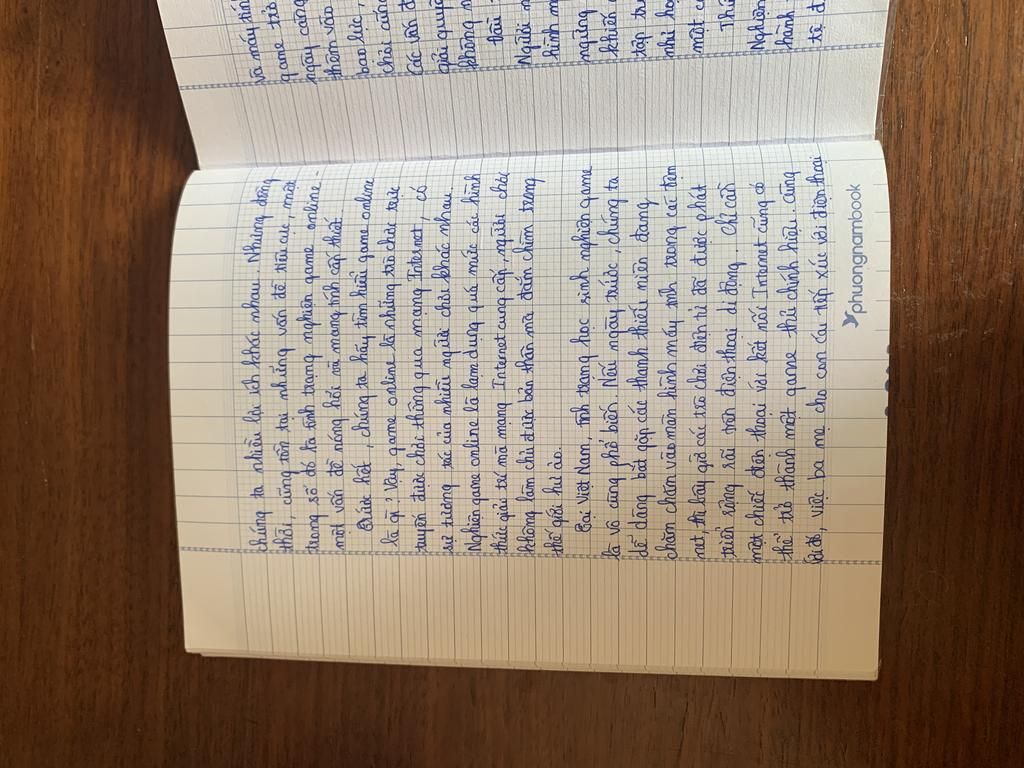 chúng ta nhiều lợi ích khác nhau. Nhưng đồng
thời, cũng tồn tại những vấn đề tiêu cực, một
trong số đó là tình trạng nghiện game online.
một vấn đề nóng hổi và mang tính cấp thiết
Trước hết, chúng ta hãy tìm hiểu game online
là gì? Vậy, game online là những trò chơi trực
tuyến được chơi thông qua mạng Internet, có
sự tương tác của nhiều người chơi khác nhau.
Nghiện game online là lạm dụng quá mức các hình
thức giải trí mà mạng Internet cung cấp, người chơi
không làm chủ được bản thân mà đắm chìm trong
thế giới hư ảo.
Tại Việt Nam, tình trạng học sinh nghiện game
là vô cùng phổ biến. Nếu ngày trước, chúng ta
dễ dàng bắt gặp các thanh thiếu niên đang
chăm chăm vào màn hình máy tính trong các tiệm
net, thì bây giờ các trò chơi điện tử đã được phát
triển rộng rãi trên điện thoại di động. Chỉ cần
một chiếc điện thoại với kết nối Internet cũng có
thể trở thành một game thủ chính hiệu. Cùng
với đó, việc ba mẹ cho con cái tiếp xúc với điện thoại
phuongnambook
và máy tín
game trở
ngày càng
thân vào
bạo lực,
chơi cũng
Các vấn đ
giải quy
không n
Người m
hình m
ngừng
khiến
tập tru
một c
Nghiện
hành